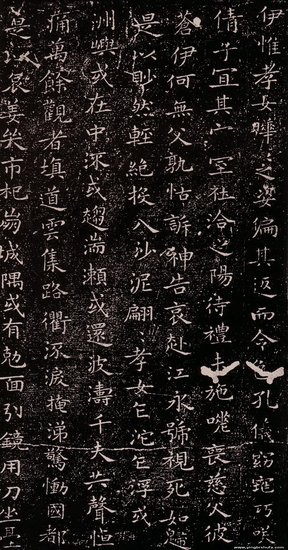 伊惟孝女曄〻之姿偏其返而令色孔儀窈窕巧咲
倩子宜其家室在洽之陽待禮未施嗟喪慈父彼
蒼伊何無父孰怙訴神告哀赴江永號視死如歸
是以眇然輕絕投入沙泥翩〻孝女乍沉乍浮或
洲嶼或在中流或趨湍瀨或還波濤千夫共聲悼
痛萬餘觀者填道雲集路衢流淚掩涕驚慟國都
是以哀姜哭市杞崩城隅或有剋面引鏡用刀坐臺